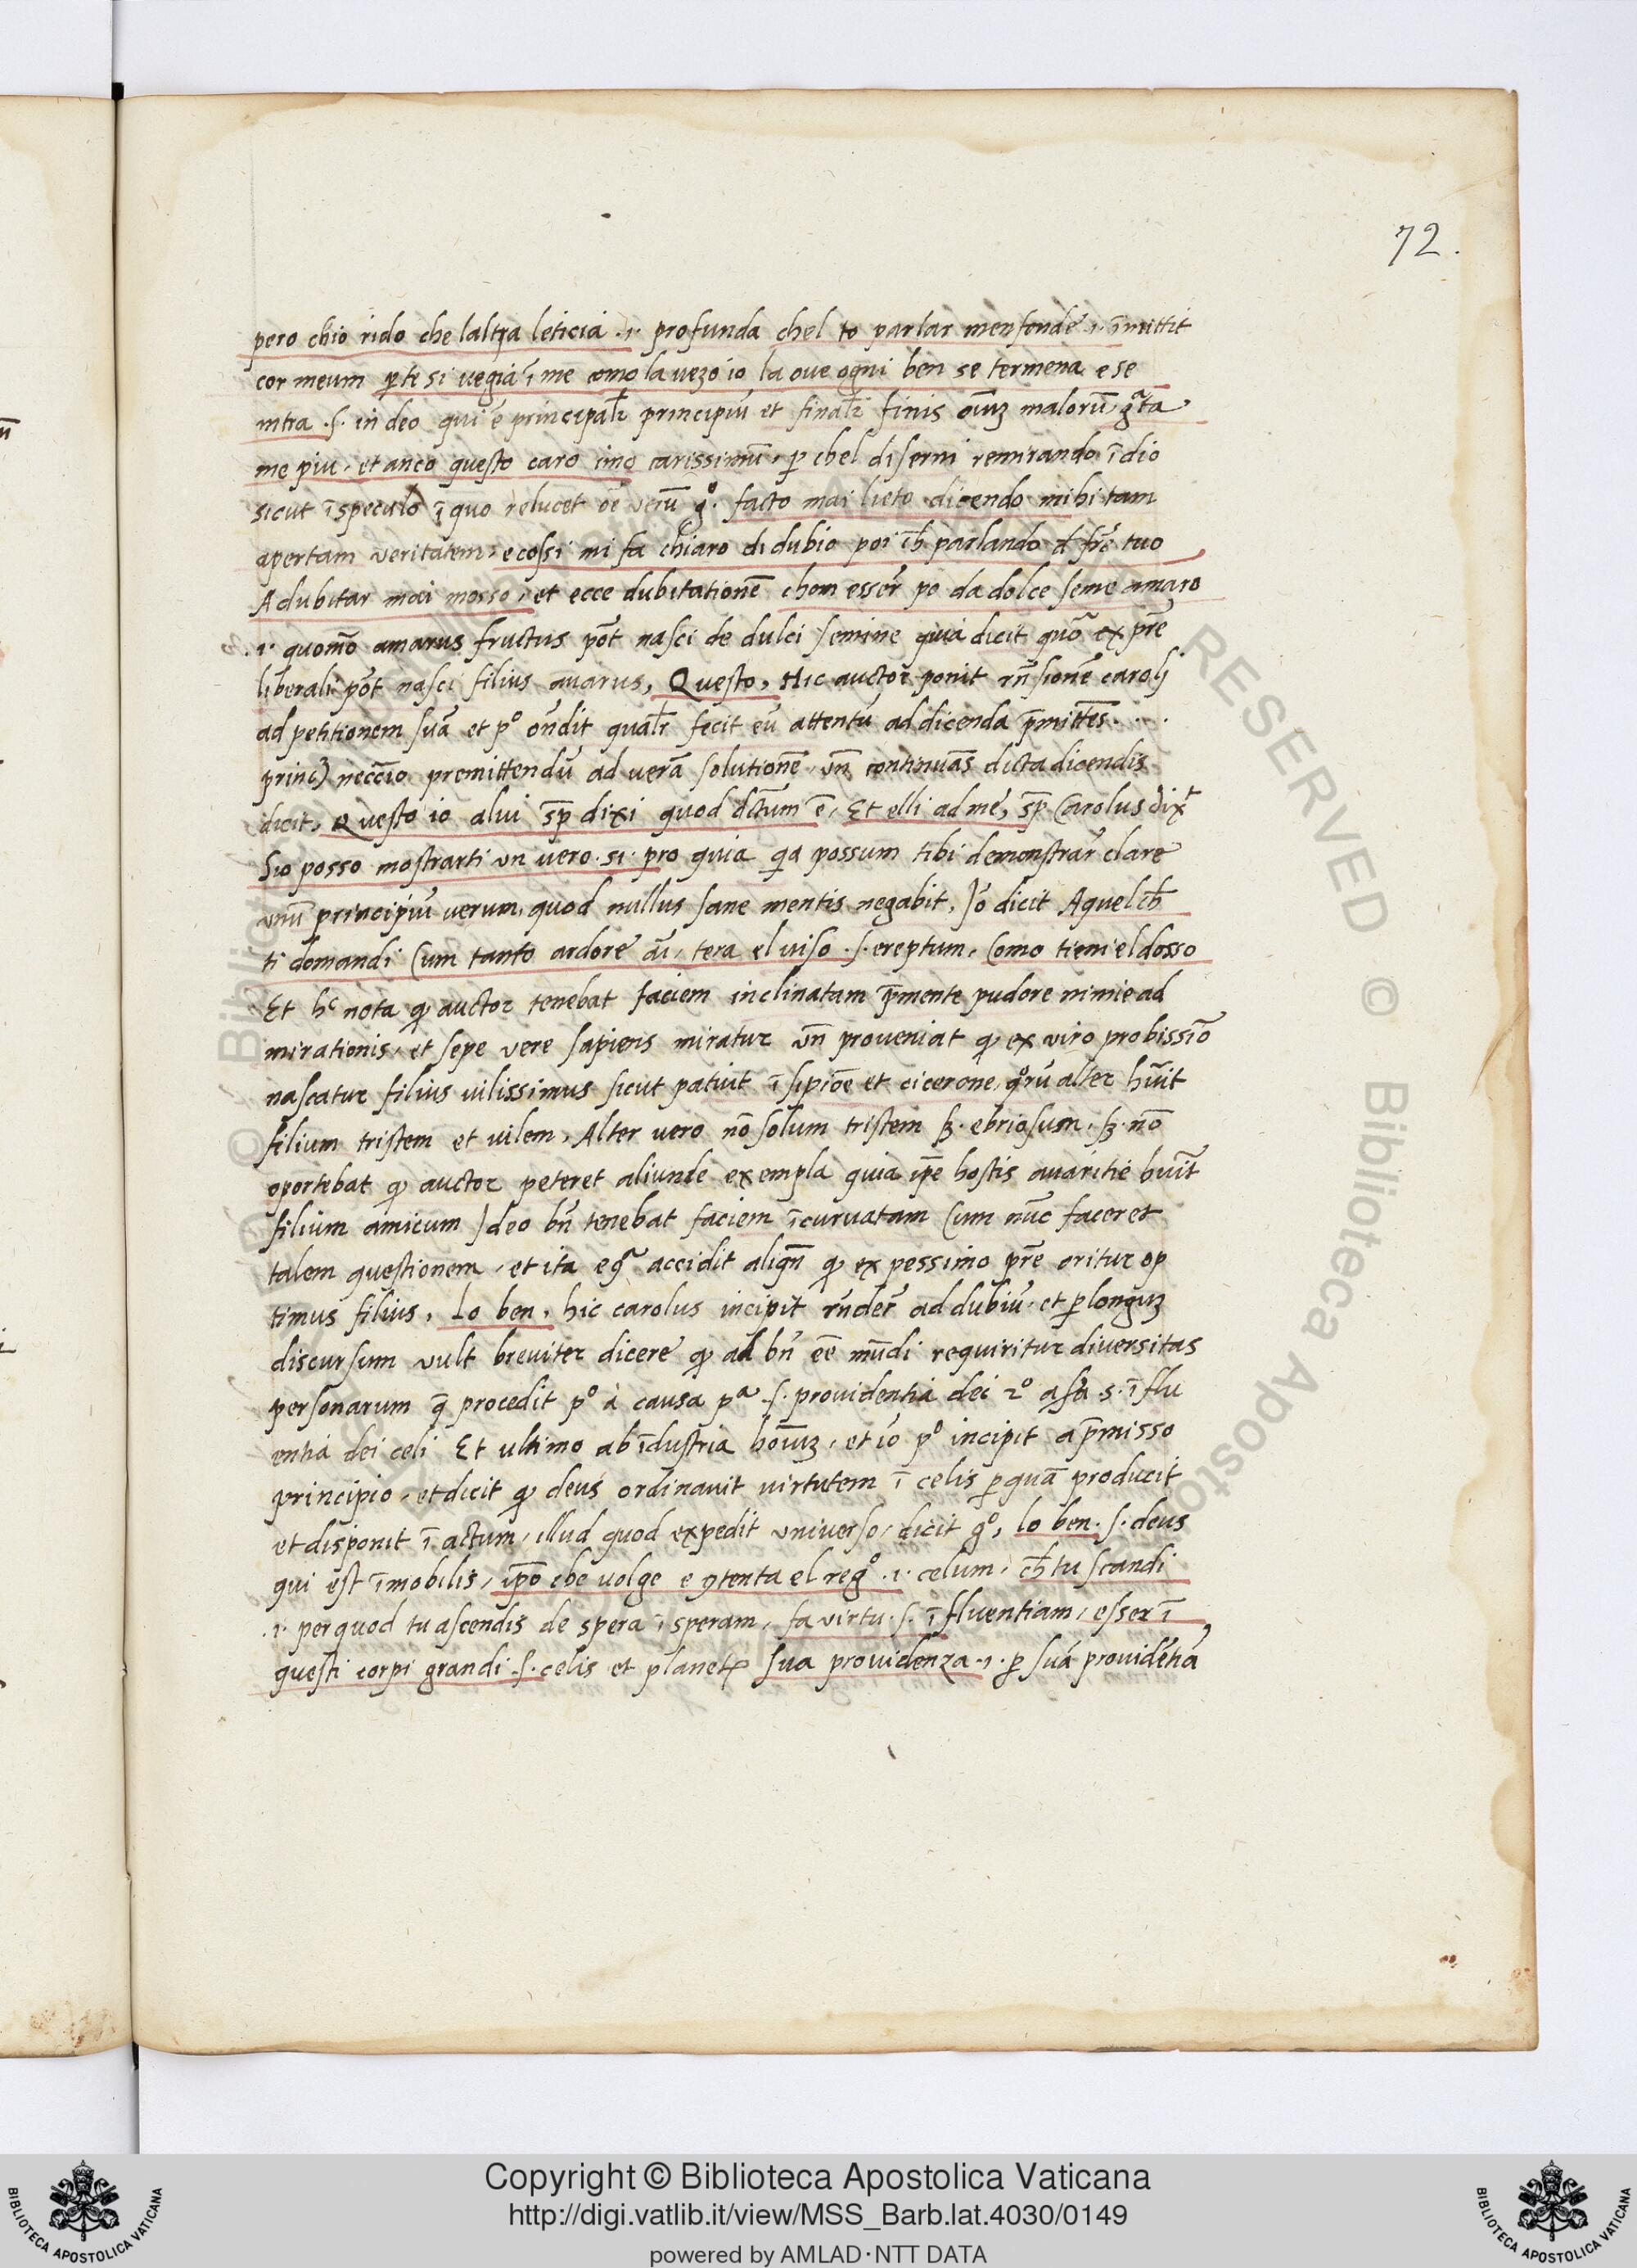 72.
pero chio rido che laltra leticia .i. profunda chel to parlar menfonde .i. īmittit
cor meum p te si uegia ī me como la uezo io la oue ogni ben se termena e se
intra .s. in deo qui ē principalr̄ principiū et finalr̄ finis oīuz malorū grata
me piu. et anco questo caro imo carissimū, p chel diserni remirando ī dio
sicut ī speculo ī quo relucet oē verū gº. facto mai lieto dicendo mihi tam
apertam veritatem, e cossi mi fa chiaro di dubio poi ch̄ parlando d fr̄e tuo
A dubitar mai mosso, et ecce dubitationē chom esser̄ po da dolce seme amaro
.i. quomō amarus fructus pōt nasci de dulci semine quia dicit quō ex pr̄e
liberali pōt nasci filius auarus, Questo, Hic auctor ponit rn̄sionē caroli
ad petitionem suā et pº on̄dit qualr̄ fecit eū attentū ad dicenda p̄mittēs . . .
princ) neccīo premittendū ad uerā solutionē, vn̄ continuās dicta dicendis
dicit, Questo io a lui sp̄ dixi quod dc̄tum ē, Et elli ad me, sp̄ Carolus dixt
Sio posso mostrarti vn vero .si. pro quia qa possum tibi demonstrar̄ clare
vnū principiū uerum, quod nullus sane mentis negabit, Iō dicit Aquel ch̄
ti domandi Cum tanto ardore āi, tera el uiso .s. ereptum, Como tieni el dosso
Et hc nota q auctor tenebat faciem inclinatam p̄mente pudore nimie ad
mirationis, et sepe vere sapiens miratur vn̄ proveniat q ex viro probissīo
nascatur filius uilissimus sicut patuit ī sipiōe et cicerone, qorū alter hūit
filium tristem et uilem, Alter vero nō solum tristem sz. ebriosum, sz. nō
oportebat q auctor peteret aliunde exempla quia ip̄e hostis auaritie huīt
filium amicum Ideo bn̄ tenebat faciem īcuruatam Cum nūc faceret
talem questionem, et ita ega accidit aliqn̄ q ex pessimo pr̄e oritur op
timus filius, Lo ben, hic carolus incipit rn̄der̄ ad dubiū. et p longuz
discursum vult breuiter dicere q ad bn̄ eē mūdi requiritur diuersitas
personarum q̄ procedit pº a causa pª .s. prouidentia dei 2º a sa .s. īflu
entia dei celi Et ultimo ab īdustria hoīuz, et iō pº incipit a p̄misso
principio, et dicit q deus ordinauit uirtutem ī celis p quā producit
et disponit ī actum, illud quod expedit vniuerso, dicit gº, lo ben .s. deus
qui est īmobilis, ip̄o che uolge e 9tenta el regº .i. celum, ch̄ tu scandi
.i. per quod tu ascendis de spera ī speram, fa virtu .s. īfluentiam, esser ī
questi corpi grandi .s. celis et planet sua prouidenza .i. p suā prouidētiā
Copyright © Biblioteca Apostolica Vaticana
http://digi.vatlib.it/view/MSS_Barb.lat.4030/0149
powered by AMLAD·NTT DATA